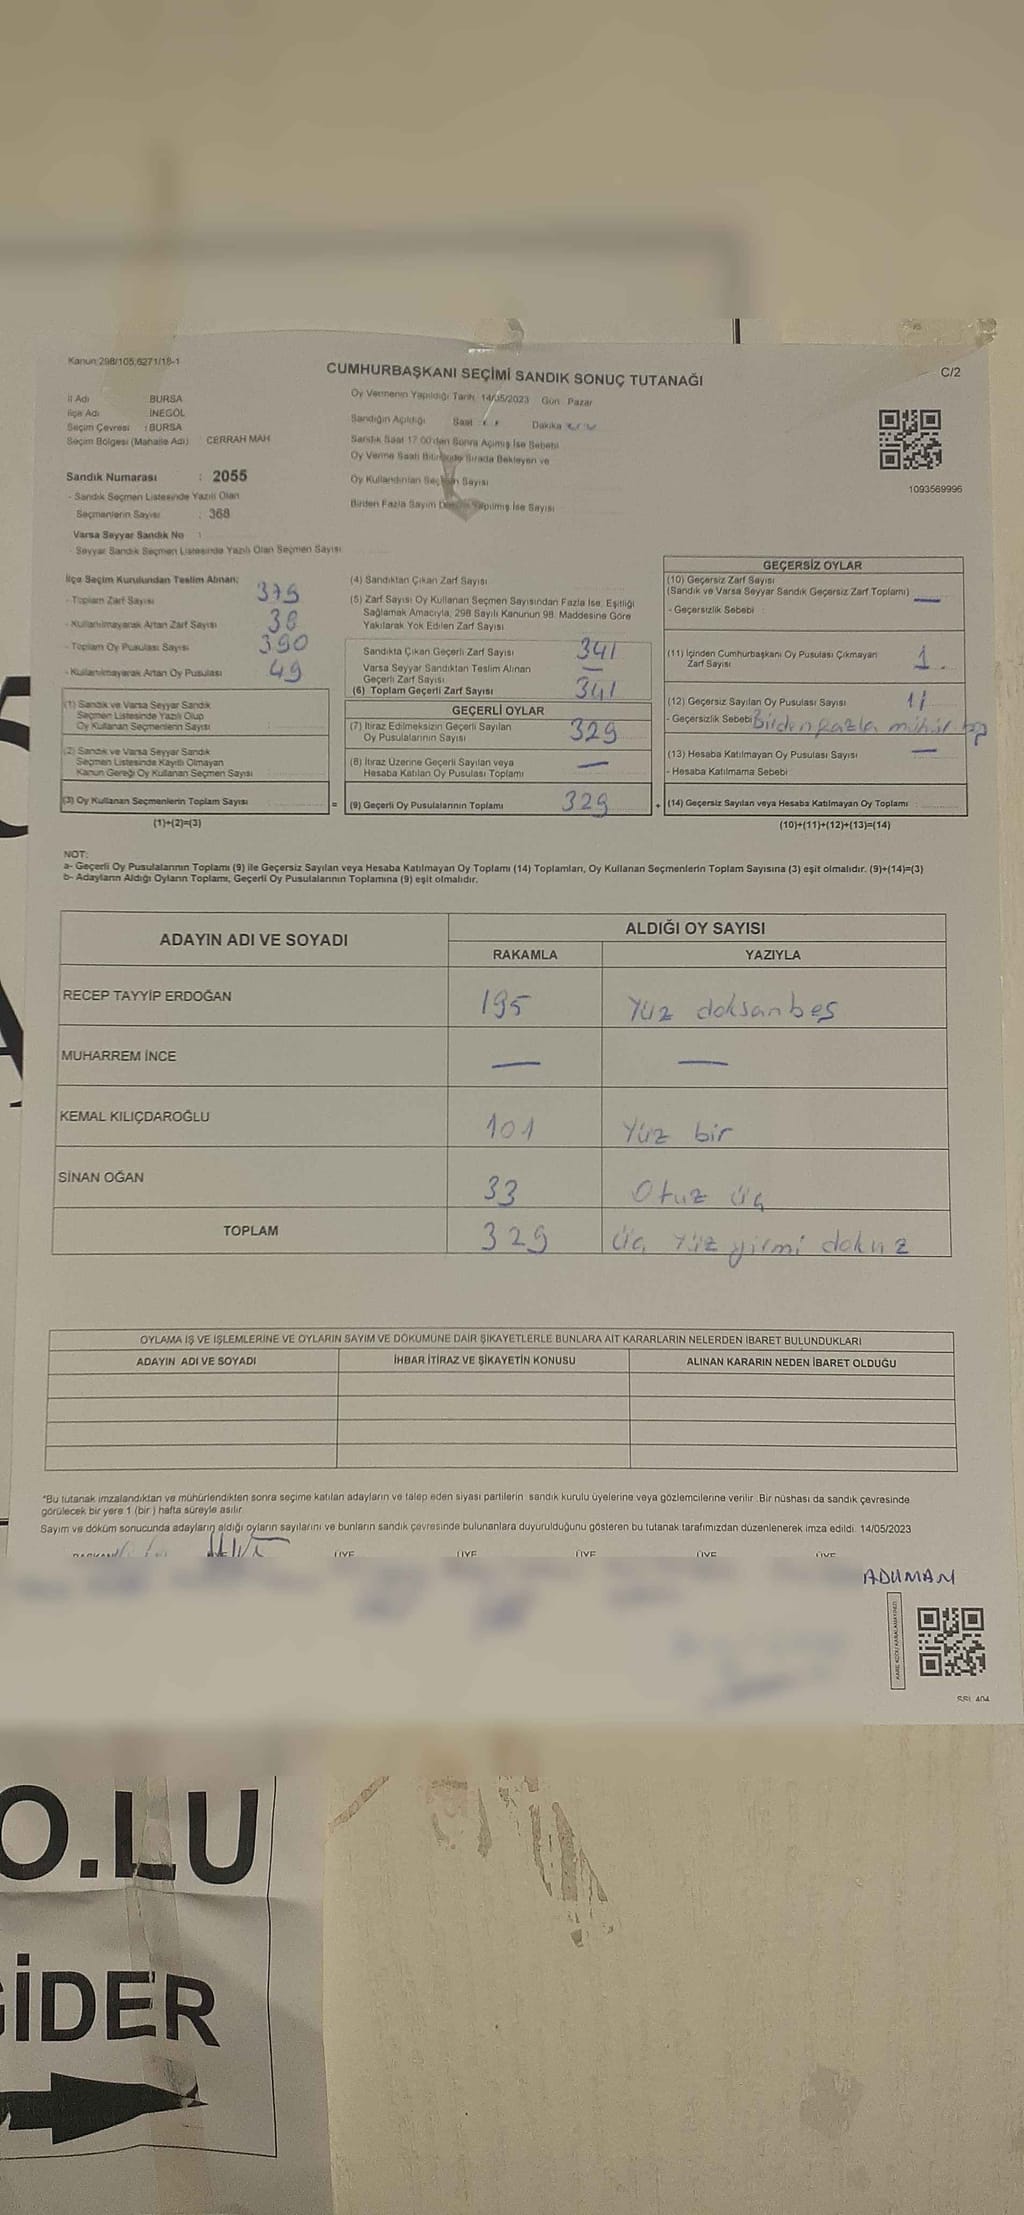 Kanun:298/105,6271/18-1
CUMHURBAŞKANI SEÇİMİ SANDIK SONUÇ TUTANAĞI
C/2
İl Adı BURSA
İlçe Adı İNEGÖL
Seçim Çevresi : BURSA
Seçim Bölgesi (Mahalle Adı) : CERRAH MAH
Oy Vermenin Yapıldığı Tarih: 14/05/2023 Gün: Pazar
Sandığın Açıldığı Saat Dakika
Sandık Saat 17.00'den Sonra Açılmış İse Sebebi
Oy Verme Saati Bitiminde Sırada Bekleyen ve
Oy Kullandırılan Seçmen Sayısı
Birden Fazla Sayım Yapılmış İse Sayısı
1093569996
Sandık Numarası : 2055
- Sandık Seçmen Listesinde Yazılı Olan
Seçmenlerin Sayısı : 368
Varsa Seyyar Sandık No :
- Seyyar Sandık Seçmen Listesinde Yazılı Olan Seçmen Sayısı
İlçe Seçim Kurulundan Teslim Alınan:
- Toplam Zarf Sayısı 379
- Kullanılmayarak Artan Zarf Sayısı 38
- Toplam Oy Pusulası Sayısı 390
- Kullanılmayarak Artan Oy Pusulası 49
(1) Sandık ve Varsa Seyyar Sandık
Seçmen Listesinde Yazılı Olup
Oy Kullanan Seçmenlerin Sayısı
(2) Sandık ve Varsa Seyyar Sandık
Seçmen Listesinde Kayıtlı Olmayan
Kanun Gereği Oy Kullanan Seçmen Sayısı
(3) Oy Kullanan Seçmenlerin Toplam Sayısı
(1)+(2)=(3)
(4) Sandıktan Çıkan Zarf Sayısı
(5) Zarf Sayısı Oy Kullanan Seçmen Sayısından Fazla İse, Eşitliği
Sağlamak Amacıyla, 298 Sayılı Kanunun 98. Maddesine Göre
Yakılarak Yok Edilen Zarf Sayısı
Sandıkta Çıkan Geçerli Zarf Sayısı 341
Varsa Seyyar Sandıktan Teslim Alınan
Geçerli Zarf Sayısı —
(6) Toplam Geçerli Zarf Sayısı 341
GEÇERLİ OYLAR
(7) İtiraz Edilmeksizin Geçerli Sayılan
Oy Pusulalarının Sayısı 329
(8) İtiraz Üzerine Geçerli Sayılan veya
Hesaba Katılan Oy Pusulası Toplamı —
= (9) Geçerli Oy Pusulalarının Toplamı 329
GEÇERSİZ OYLAR
(10) Geçersiz Zarf Sayısı
(Sandık ve Varsa Seyyar Sandık Geçersiz Zarf Toplamı) —
- Geçersizlik Sebebi :
(11) İçinden Cumhurbaşkanı Oy Pusulası Çıkmayan
Zarf Sayısı 1
(12) Geçersiz Sayılan Oy Pusulası Sayısı 11
- Geçersizlik Sebebi Birden fazla mühür
(13) Hesaba Katılmayan Oy Pusulası Sayısı —
- Hesaba Katılmama Sebebi
+ (14) Geçersiz Sayılan veya Hesaba Katılmayan Oy Toplamı :
(10)+(11)+(12)+(13)=(14)
NOT:
a- Geçerli Oy Pusulalarının Toplamı (9) ile Geçersiz Sayılan veya Hesaba Katılmayan Oy Toplamı (14) Toplamları, Oy Kullanan Seçmenlerin Toplam Sayısına (3) eşit olmalıdır. (9)+(14)=(3)
b- Adayların Aldığı Oyların Toplamı, Geçerli Oy Pusulalarının Toplamına (9) eşit olmalıdır.
ADAYIN ADI VE SOYADI ALDIĞI OY SAYISI
RAKAMLA YAZIYLA
RECEP TAYYİP ERDOĞAN 195 Yüz doksanbeş
MUHARREM İNCE — —
KEMAL KILIÇDAROĞLU 101 Yüz bir
SİNAN OĞAN 33 Otuz üç
TOPLAM 329 Üç Yüz yirmi dokuz
OYLAMA İŞ VE İŞLEMLERİNE VE OYLARIN SAYIM VE DÖKÜMÜNE DAİR ŞİKAYETLERLE BUNLARA AİT KARARLARIN NELERDEN İBARET BULUNDUKLARI
ADAYIN ADI VE SOYADI İHBAR İTİRAZ VE ŞİKAYETİN KONUSU ALINAN KARARIN NEDEN İBARET OLDUĞU
*Bu tutanak imzalandıktan ve mühürlendikten sonra seçime katılan adayların ve talep eden siyası partilerin sandık kurulu üyelerine veya gözlemcilerine verilir. Bir nüshası da sandık çevresinde
görülecek bir yere 1 (bir) hafta süreyle asılır.
Sayım ve döküm sonucunda adayların aldığı oyların sayılarını ve bunların sandık çevresinde bulunanlara duyurulduğunu gösteren bu tutanak tarafımızdan düzenlenerek imza edildi. 14/05/2023
ÜYE ÜYE ÜYE ÜYE ÜYE
ADUMAN
O.LU
GİDER